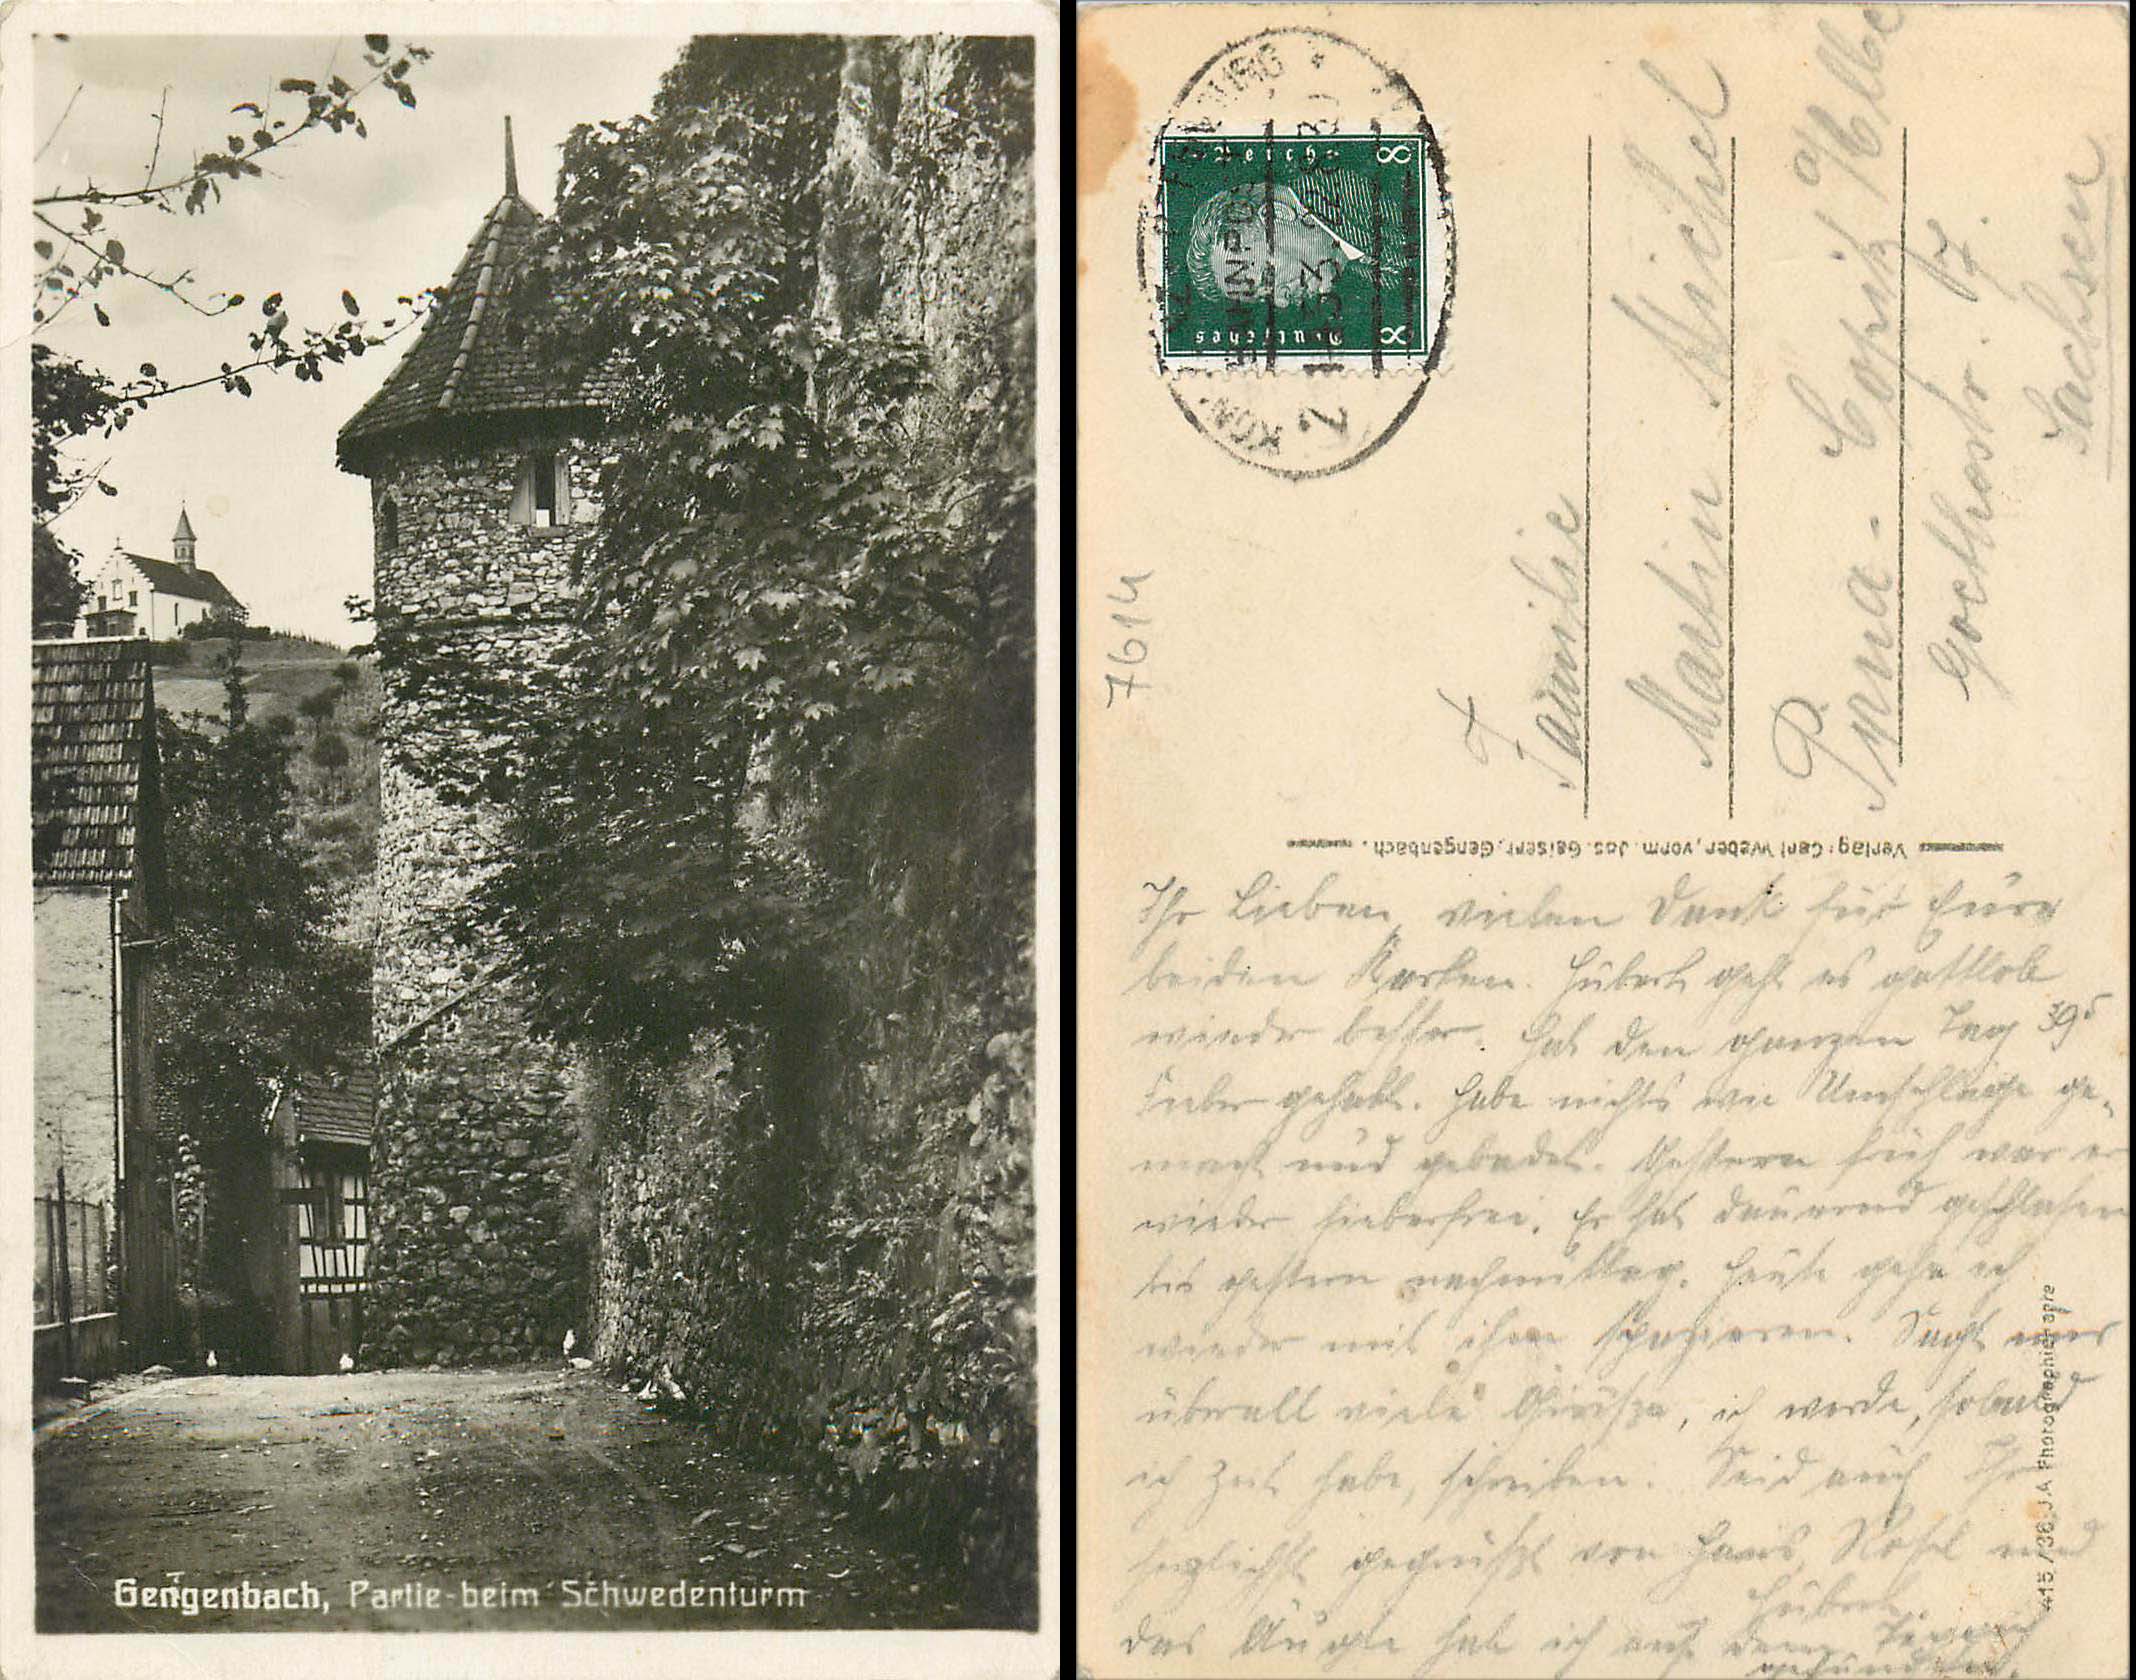 Gengenbach, Partie beim Schwedenturm
Deutsches Reich
8 8
BAHNPOST
7614
Familie
Martin Michel
Pirna-Copitz a/Elbe
Goethestr. 17.
Sachsen
Verlag: Carl Weber, vorm. Jos. Gaisert, Gengenbach.
Ihr Lieben, vielen Dank für Eure
beiden Karten. Hubert geht es gottlob
wieder besser. Hat den ganzen Tag 39⁵
Fieber gehabt. Habe nichts wie Umschläge ge-
macht und gebadet. Gestern früh war er
wieder fieberfrei. Er hat dauernd geschlafen
bis gestern nachmittag. Heute gehe ich
wieder mit ihm spazieren. Sagt
überall viele Grüsse, ich werde, sobald
ich Zeit habe, schreiben. Seid auch Ihr
herzlichst gegrüßt von Hans, Rosel und
Hubert
das Auge hab ich auf dem
gefunden.
415/36 J.A Photographie